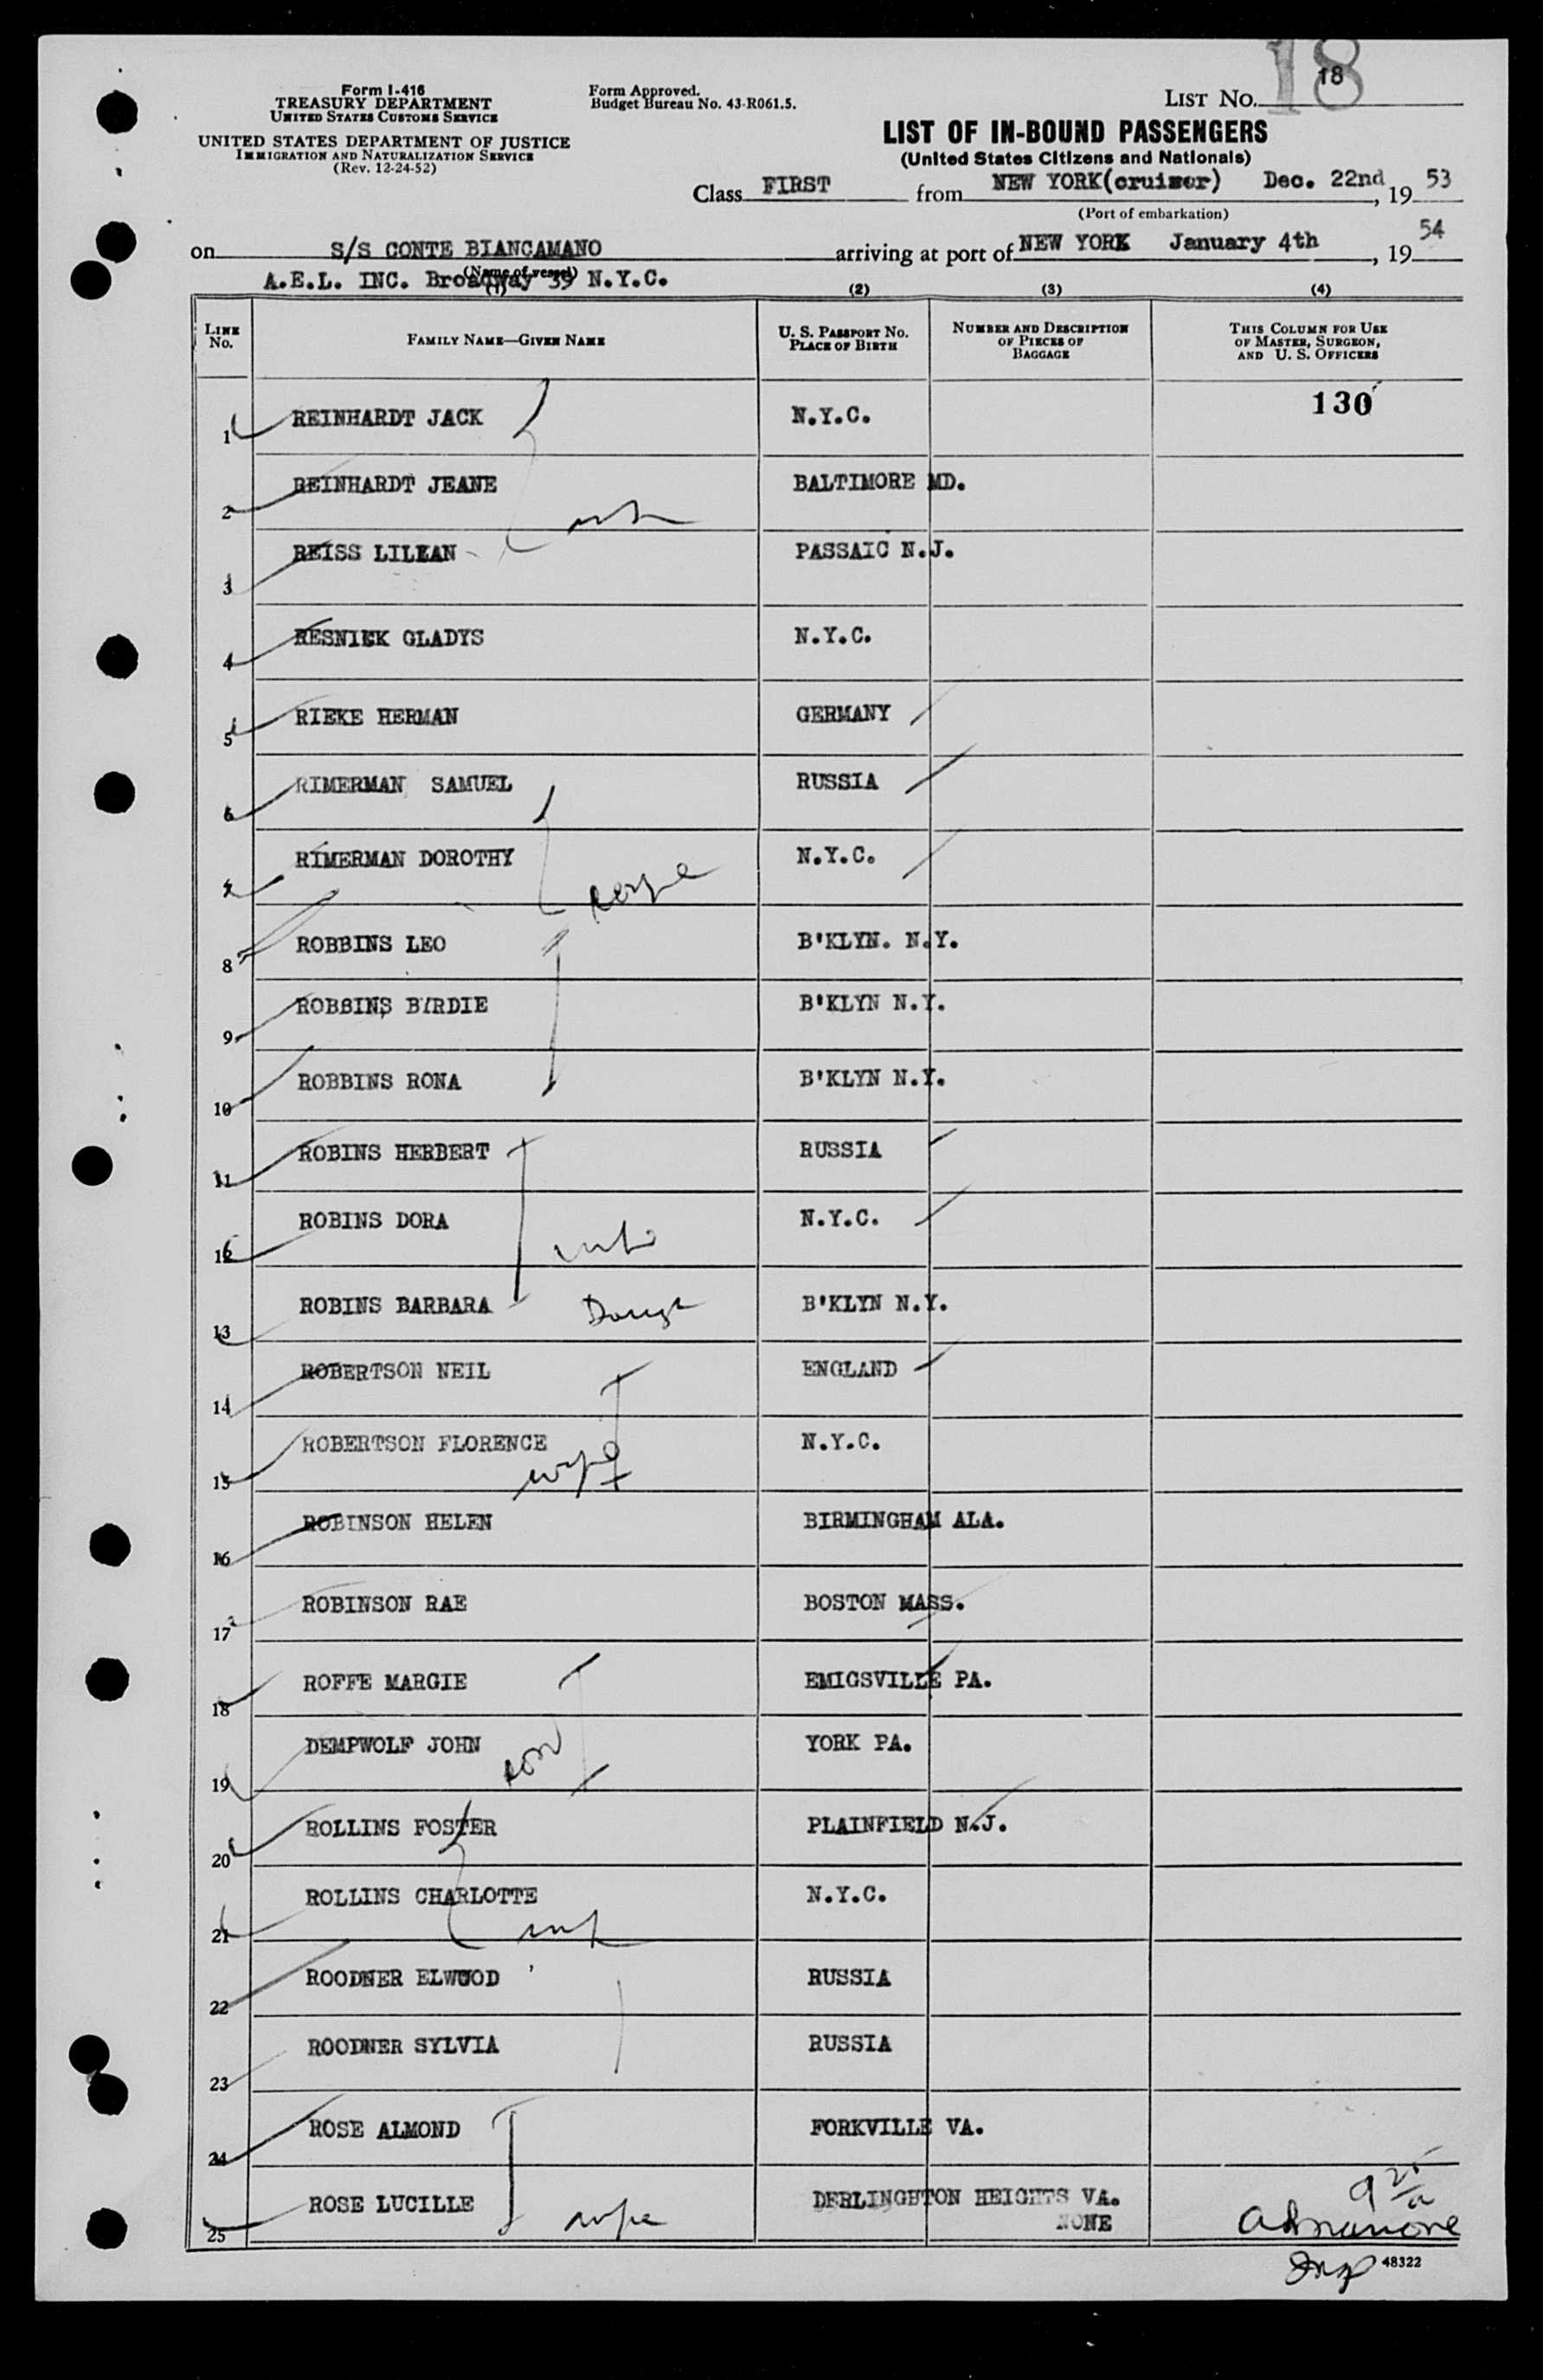 18
Form I-416
TREASURY DEPARTMENT
UNITED STATES CUSTOMS SERVICE
UNITED STATES DEPARTMENT OF JUSTICE
IMMIGRATION AND NATURALIZATION SERVICE
(Rev. 12-24-52)
Form Approved.
Budget Bureau No. 43-R061.5.
LIST NO. 18
LIST OF IN-BOUND PASSENGERS
(United States Citizens and Nationals)
Class FIRST from NEW YORK(cruiser) Dec. 22nd, 19 53
(Port of embarkation)
on S/S CONTE BIANCAMANO arriving at port of NEW YORK January 4th, 19 54
(Name of vessel)
A.E.L. INC. Broadway 39 N.Y.C.
(1) (2) (3) (4)
LINE No. FAMILY NAME—GIVEN NAME U. S. PASSPORT NO. PLACE OF BIRTH NUMBER AND DESCRIPTION OF PIECES OF BAGGAGE THIS COLUMN FOR USE OF MASTER, SURGEON, AND U. S. OFFICERS
130
1 REINHARDT JACK N.Y.C.
2 REINHARDT JEANE BALTIMORE MD.
3 REISS LILLIAN PASSAIC N.J.
4 RESNICK GLADYS N.Y.C.
5 RIEKE HERMAN GERMANY
6 RIMERMAN SAMUEL RUSSIA
7 RIMERMAN DOROTHY N.Y.C.
8 ROBBINS LEO B'KLYN. N.Y.
9 ROBBINS BIRDIE B'KLYN N.Y.
10 ROBBINS RONA B'KLYN N.Y.
11 ROBINS HERBERT RUSSIA
12 ROBINS DORA wife N.Y.C.
13 ROBINS BARBARA Daugh B'KLYN N.Y.
14 ROBERTSON NEIL ENGLAND
15 ROBERTSON FLORENCE wife N.Y.C.
16 ROBINSON HELEN BIRMINGHAM ALA.
17 ROBINSON RAE BOSTON MASS.
18 ROFFE MARGIE EMIGSVILLE PA.
19 DEMPWOLF JOHN son YORK PA.
20 ROLLINS FOSTER PLAINFIELD N.J.
21 ROLLINS CHARLOTTE wife N.Y.C.
22 ROODNER ELWOOD RUSSIA
23 ROODNER SYLVIA RUSSIA
24 ROSE ALMOND FORKVILLE VA.
25 ROSE LUCILLE wife DERLINGHTON HEIGHTS VA.
NONE
Insp 48322